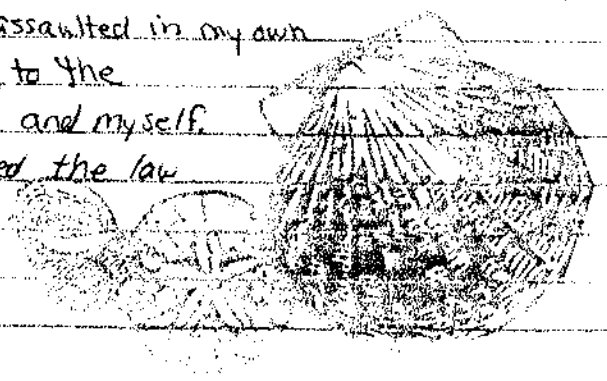 assaulted in my own
to the
and myself.
ed the law